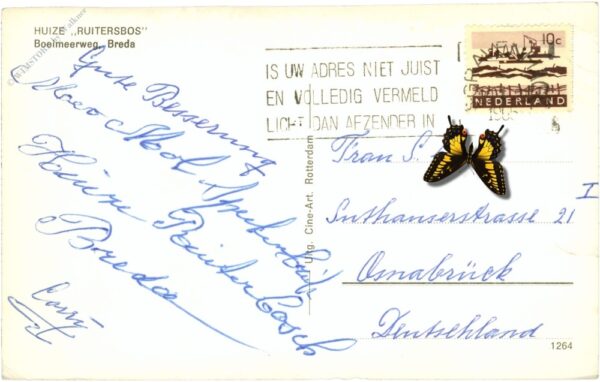 HUIZE „RUITERSBOS"
Boeimeerweg, Breda
10c
NEDERLAND
IS UW ADRES NIET JUIST
EN VOLLEDIG VERMELD
LICHT DAN AFZENDER IN
Gute Besserung
Huize Ruiterbosch
Breda
Carry
Uitg. Cine-Art. Rotterdam
Frau S.
Suthauserstrasse 21
I
Osnabrück
Deutschland
1264